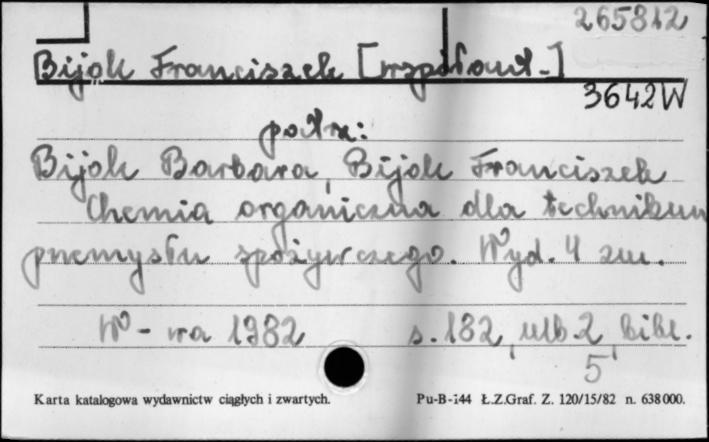 265812
Bijok Franciszek [współaut.]
3642W
patrz:
Bijok Barbara, Bijok Franciszek
Chemia organiczna dla technikum
przemysłu spożywczego. Wyd. 4 zm.
W-wa 1982 s. 182, nlb. 2, bibl.
5
Karta katalogowa wydawnictw ciągłych i zwartych. Pu-B-144 Ł.Z.Graf. Z. 120/15/82 n. 638000.